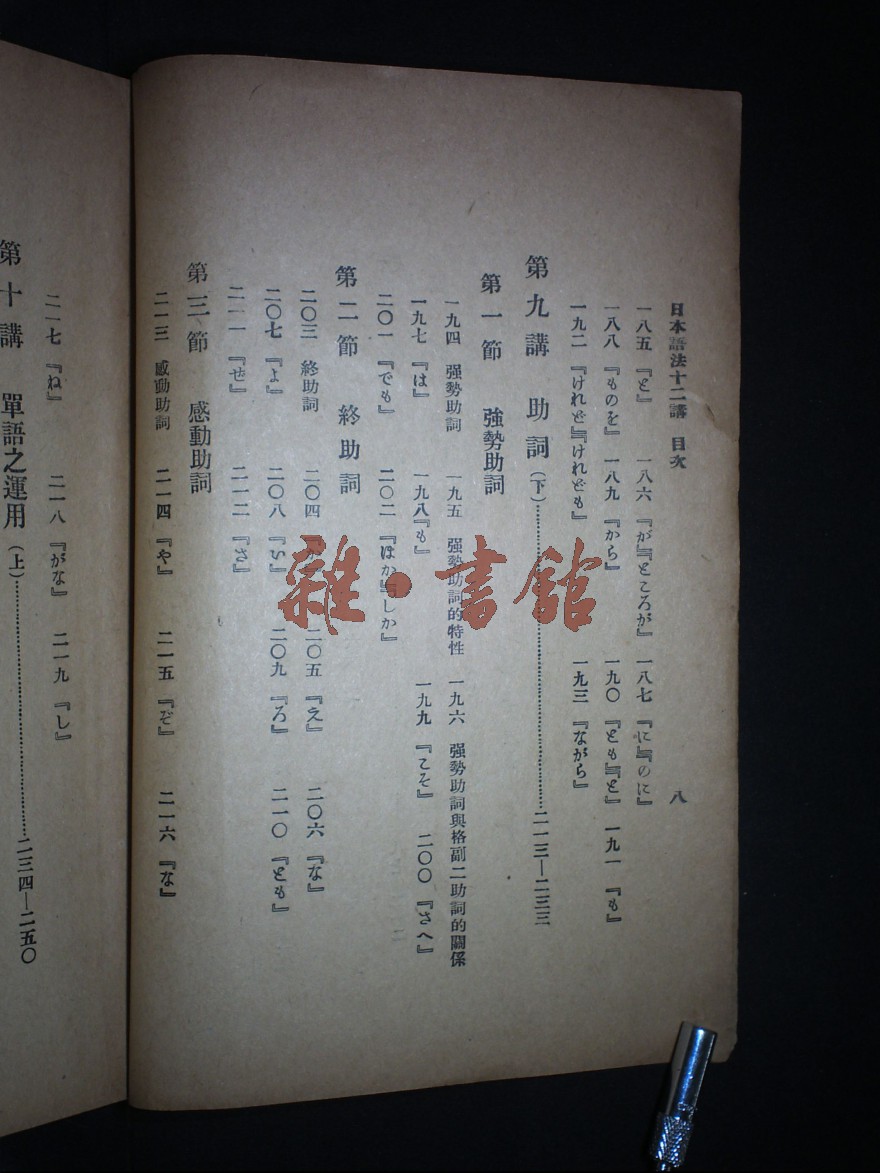 日本語法十二講　目次　八
一八五『と』　一八六『が』『ところが』　一八七『に』『のに』
一八八『ものを』　一八九『から』　一九〇『とも』『と』　一九一『も』
一九二『けれど』『けれども』　一九三『ながら』
第九講　助詞（下）……二一三—二三三
第一節　強勢助詞
一九四　強勢助詞　一九五　強勢助詞的特性　一九六　强勢助詞與格副二助詞的關係
一九七『は』　一九八『も』　一九九『こそ』　二〇〇『さへ』
二〇一『でも』　二〇二『ほか』『しか』
第二節　終助詞
二〇三　終助詞　二〇四　二〇五『え』　二〇六『な』
二〇七『よ』　二〇八『い』　二〇九『ろ』　二一〇『とも』
二一一『ぜ』　二一二『さ』
第三節　感動助詞
二一三　感動助詞　二一四『や』　二一五『ぞ』　二一六『な』
二一七『ね』　二一八『がな』　二一九『し』
第十講　單語之運用（上）……二三四—二五〇
雜·書館